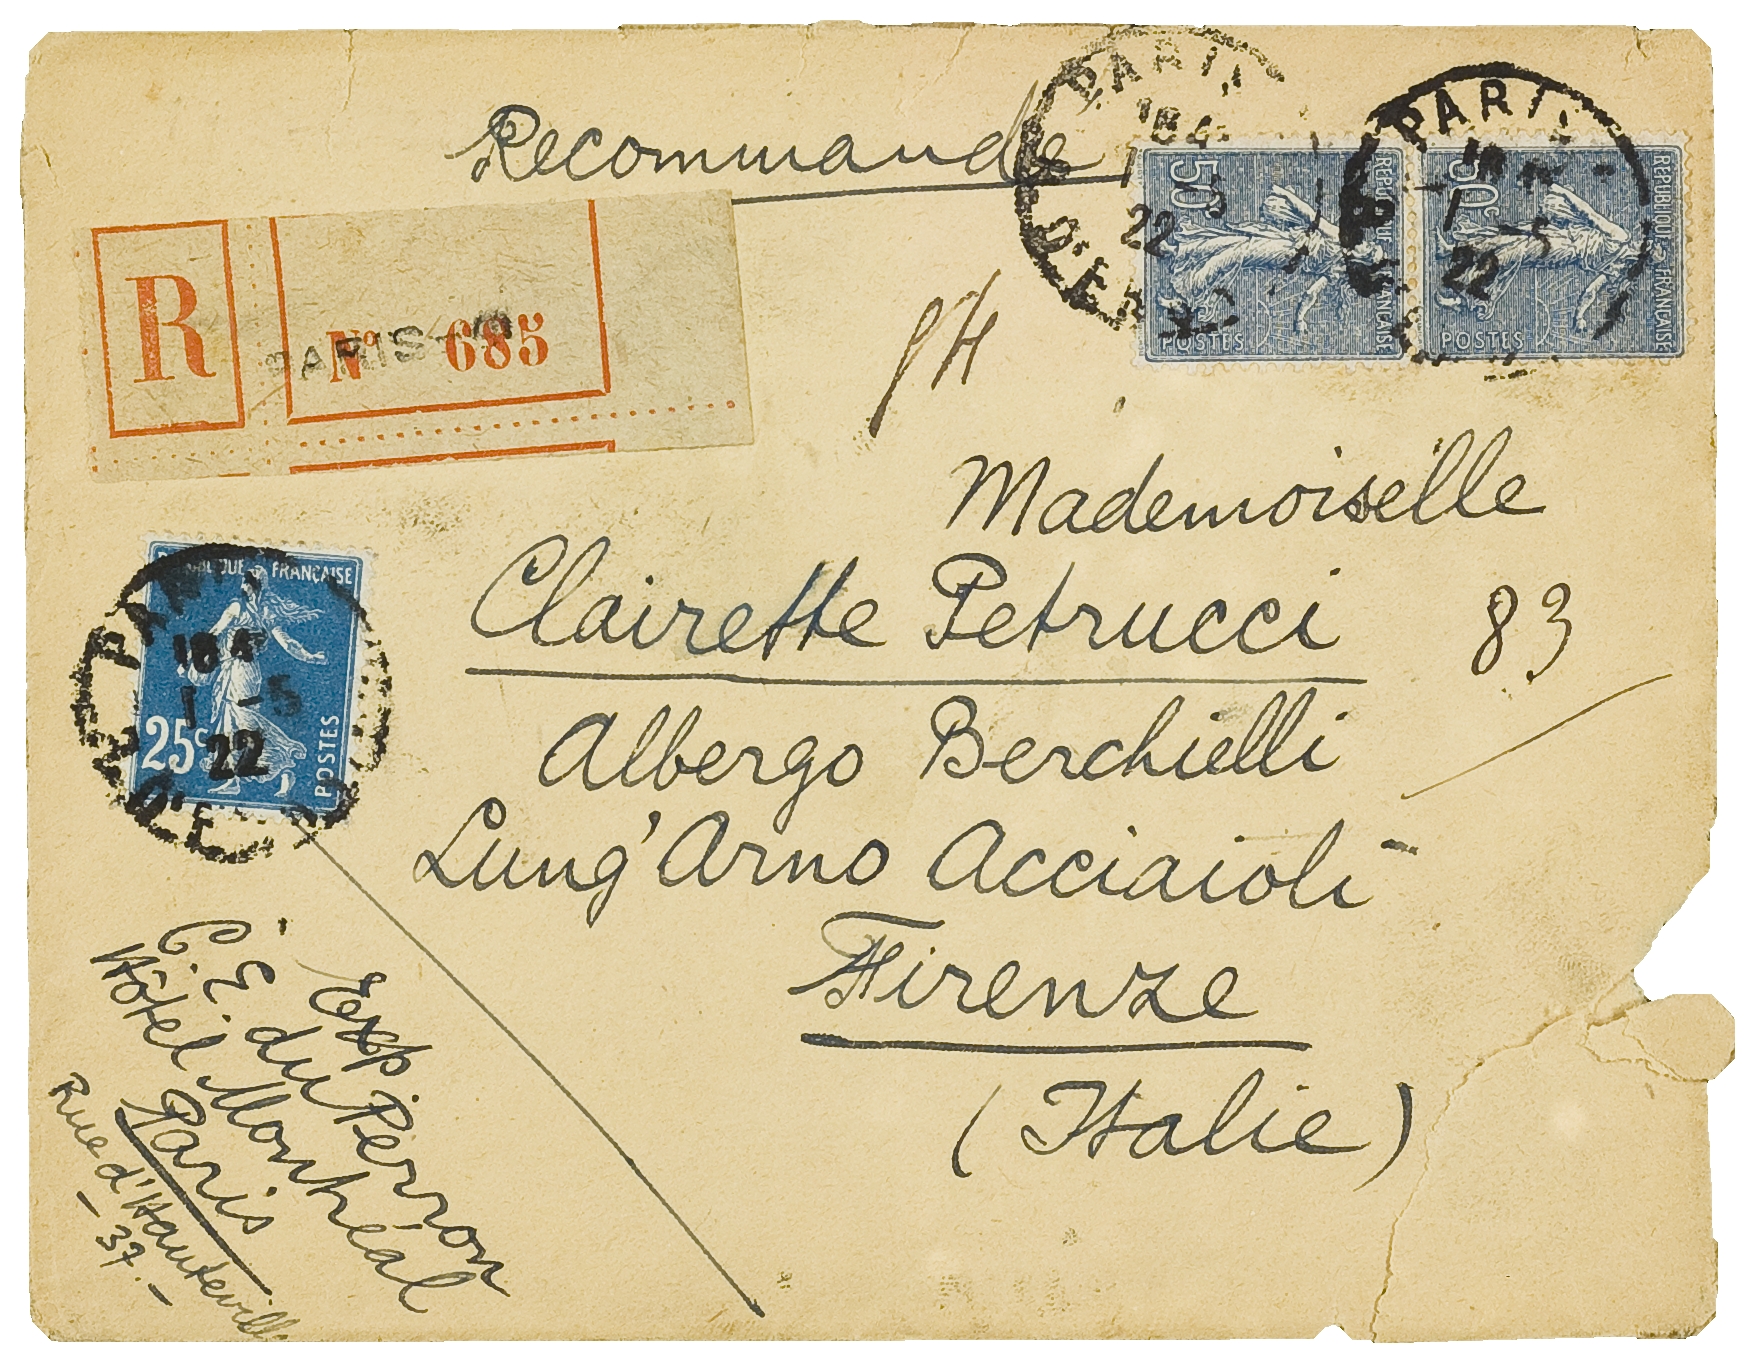 Recommandé
PARIS
18
1 -5
22
R
PARIS
Nº 685
50c
REPUBLIQUE FRANÇAISE
POSTES
50c
REPUBLIQUE FRANÇAISE
POSTES
PARIS
18
1 -5
22
Mademoiselle
Clairette Petrucci
83
Albergo Berchielli
Lung'Arno Acciaioli
Firenze
(Italie)
REPUBLIQUE FRANÇAISE
25c
POSTES
PARIS
18
1 -5
22
Exp
C. E. du Perron
Hôtel Montréal
Paris
Rue d'Hauteville
- 37. -